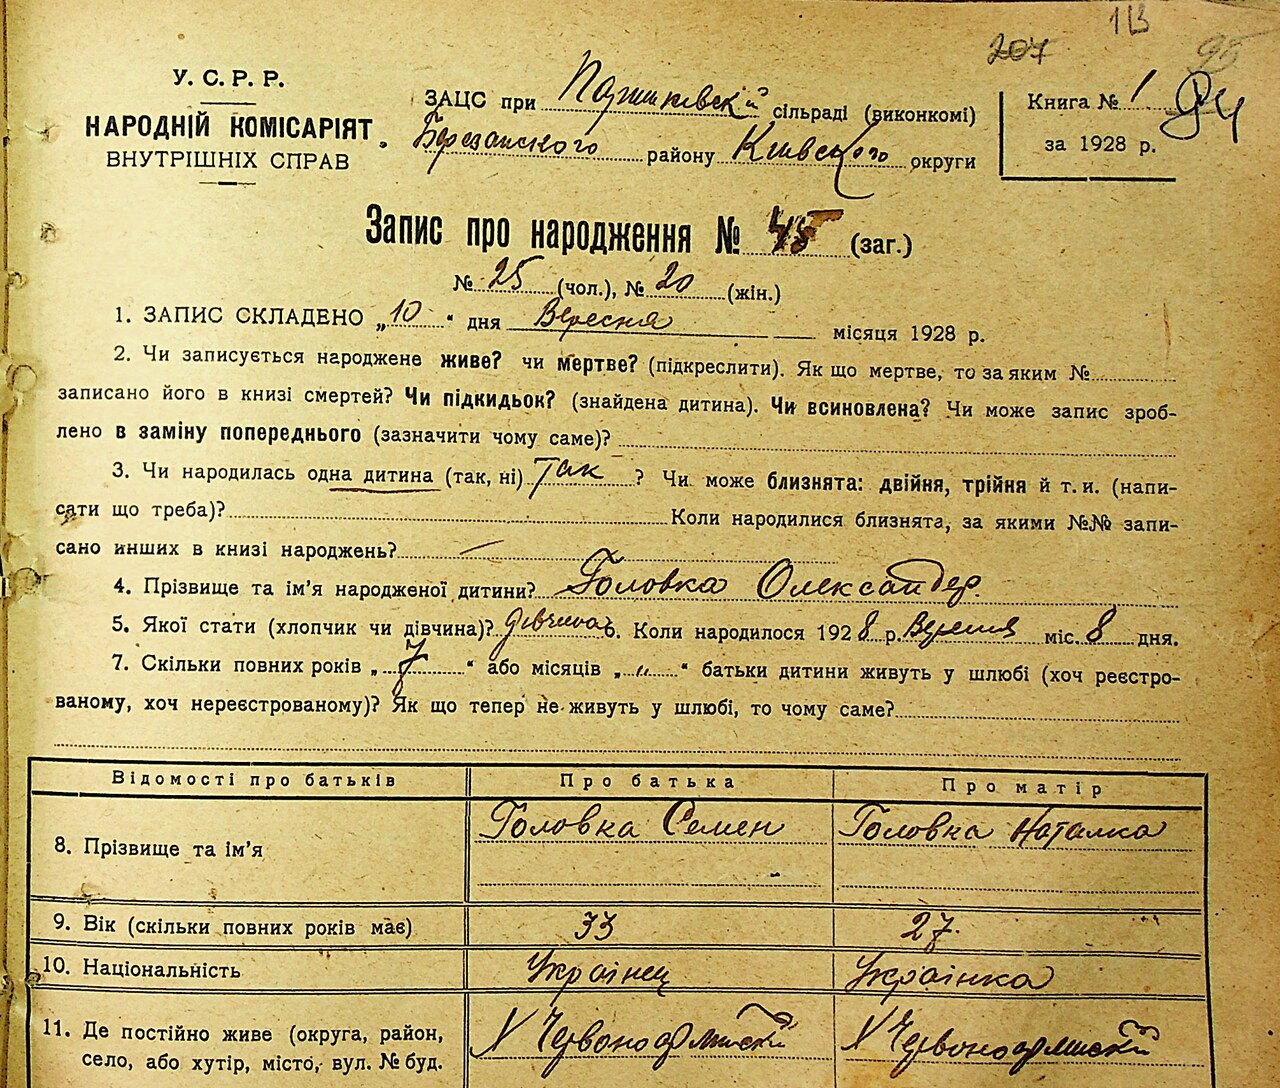 113
207
95
У. С. Р. Р.
НАРОДНІЙ КОМІСАРІЯТ
ВНУТРІШНІХ СПРАВ
ЗАЦС при сільраді (виконкомі)
Березанського району Київського округи
Книга № 1
за 1928 р.
94
Запис про народження № 45 (заг.)
№ 25 (чол.), № 20 (жін.)
1. ЗАПИС СКЛАДЕНО „10" дня Вересня місяця 1928 р.
2. Чи записується народжене живе? чи мертве? (підкреслити). Як що мертве, то за яким №
записано його в книзі смертей? Чи підкидьок? (знайдена дитина). Чи всиновлена? Чи може запис зроб-
лено в заміну попереднього (зазначити чому саме)?
3. Чи народилась одна дитина (так, ні) так ? Чи може близнята: двійня, трійня й т. и. (напи-
сати що треба)? Коли народилися близнята, за якими №№ запи-
сано инших в книзі народжень? —
4. Прізвище та ім'я народженої дитини? Головка Олександер.
5. Якої стати (хлопчик чи дівчина)? дівчина 6. Коли народилося 1928 р. Вересня міс. 8 дня.
7. Скільки повних років „7" або місяців „ " батьки дитини живуть у шлюбі (хоч реєстро-
ваному, хоч нереєстрованому)? Як що тепер не живуть у шлюбі, то чому саме?
Відомості про батьків Про батька Про матір
8. Прізвище та ім'я Головка Семен Головка Наталка
9. Вік (скільки повних років має) 33 27.
10. Національність Українец Українка
11. Де постійно живе (округа, район,
село, або хутір, місто, вул. № буд.
Х Червоноармійский Х Червоноармійский